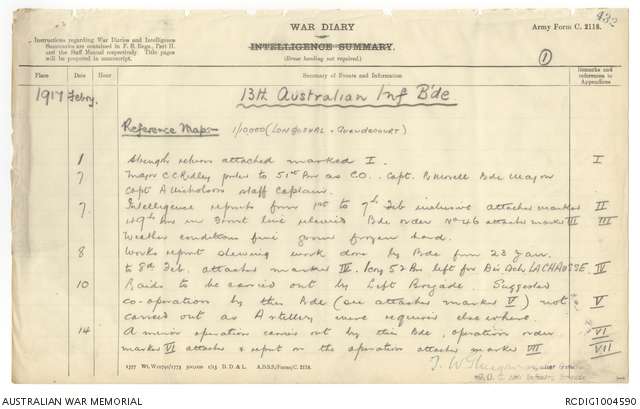 932
WAR DIARY
or
INTELLIGENCE SUMMARY.
(Erase heading not required.)
Army Form C. 2118.
Instructions regarding War Diaries and Intelligence
Summaries are contained in F. S. Regs., Part II.
and the Staff Manual respectively. Title pages
will be prepared in manuscript.
1
Place
Date
Hour
Summary of Events and Information
Remarks and
references to
Appendices
1917 Febry.
13th Australian Inf B'de
Reference Maps 1/10000 (LONGUEVAL - GUEUDECOURT)
1 Strength return attached marked I. I
7 Major C C Ridley posted to 51st Bn as CO. Capt. R Morell Bde Major
Capt A Nicholson Staff Captain.
7 Intelligence reports from 1st to 7th Feb inclusive attached marked II
49th Bn in front line relieved Bde order No 46 attached marked III III
Weather conditions fine ground frozen hard.
8 Works report shewing work done by Bde from 23 Jan
to 8d Feb. attached marked IV. 52 Bn left for Div Sch LACHAUSSE. IV
10 Raids to be carried out by Left Brigade. Suggested
co-operation by this Bde (see attached marked V) not V
carried out as Artillery were required elsewhere.
14 A minor operation carried out by this Bde, operation order VI
marked VI attached & report on the operation attached marked VII VII
D. D. & L. A.D.S.S./Forms/C. 2118.
AUSTRALIAN WAR MEMORIAL
RCDIG1004590